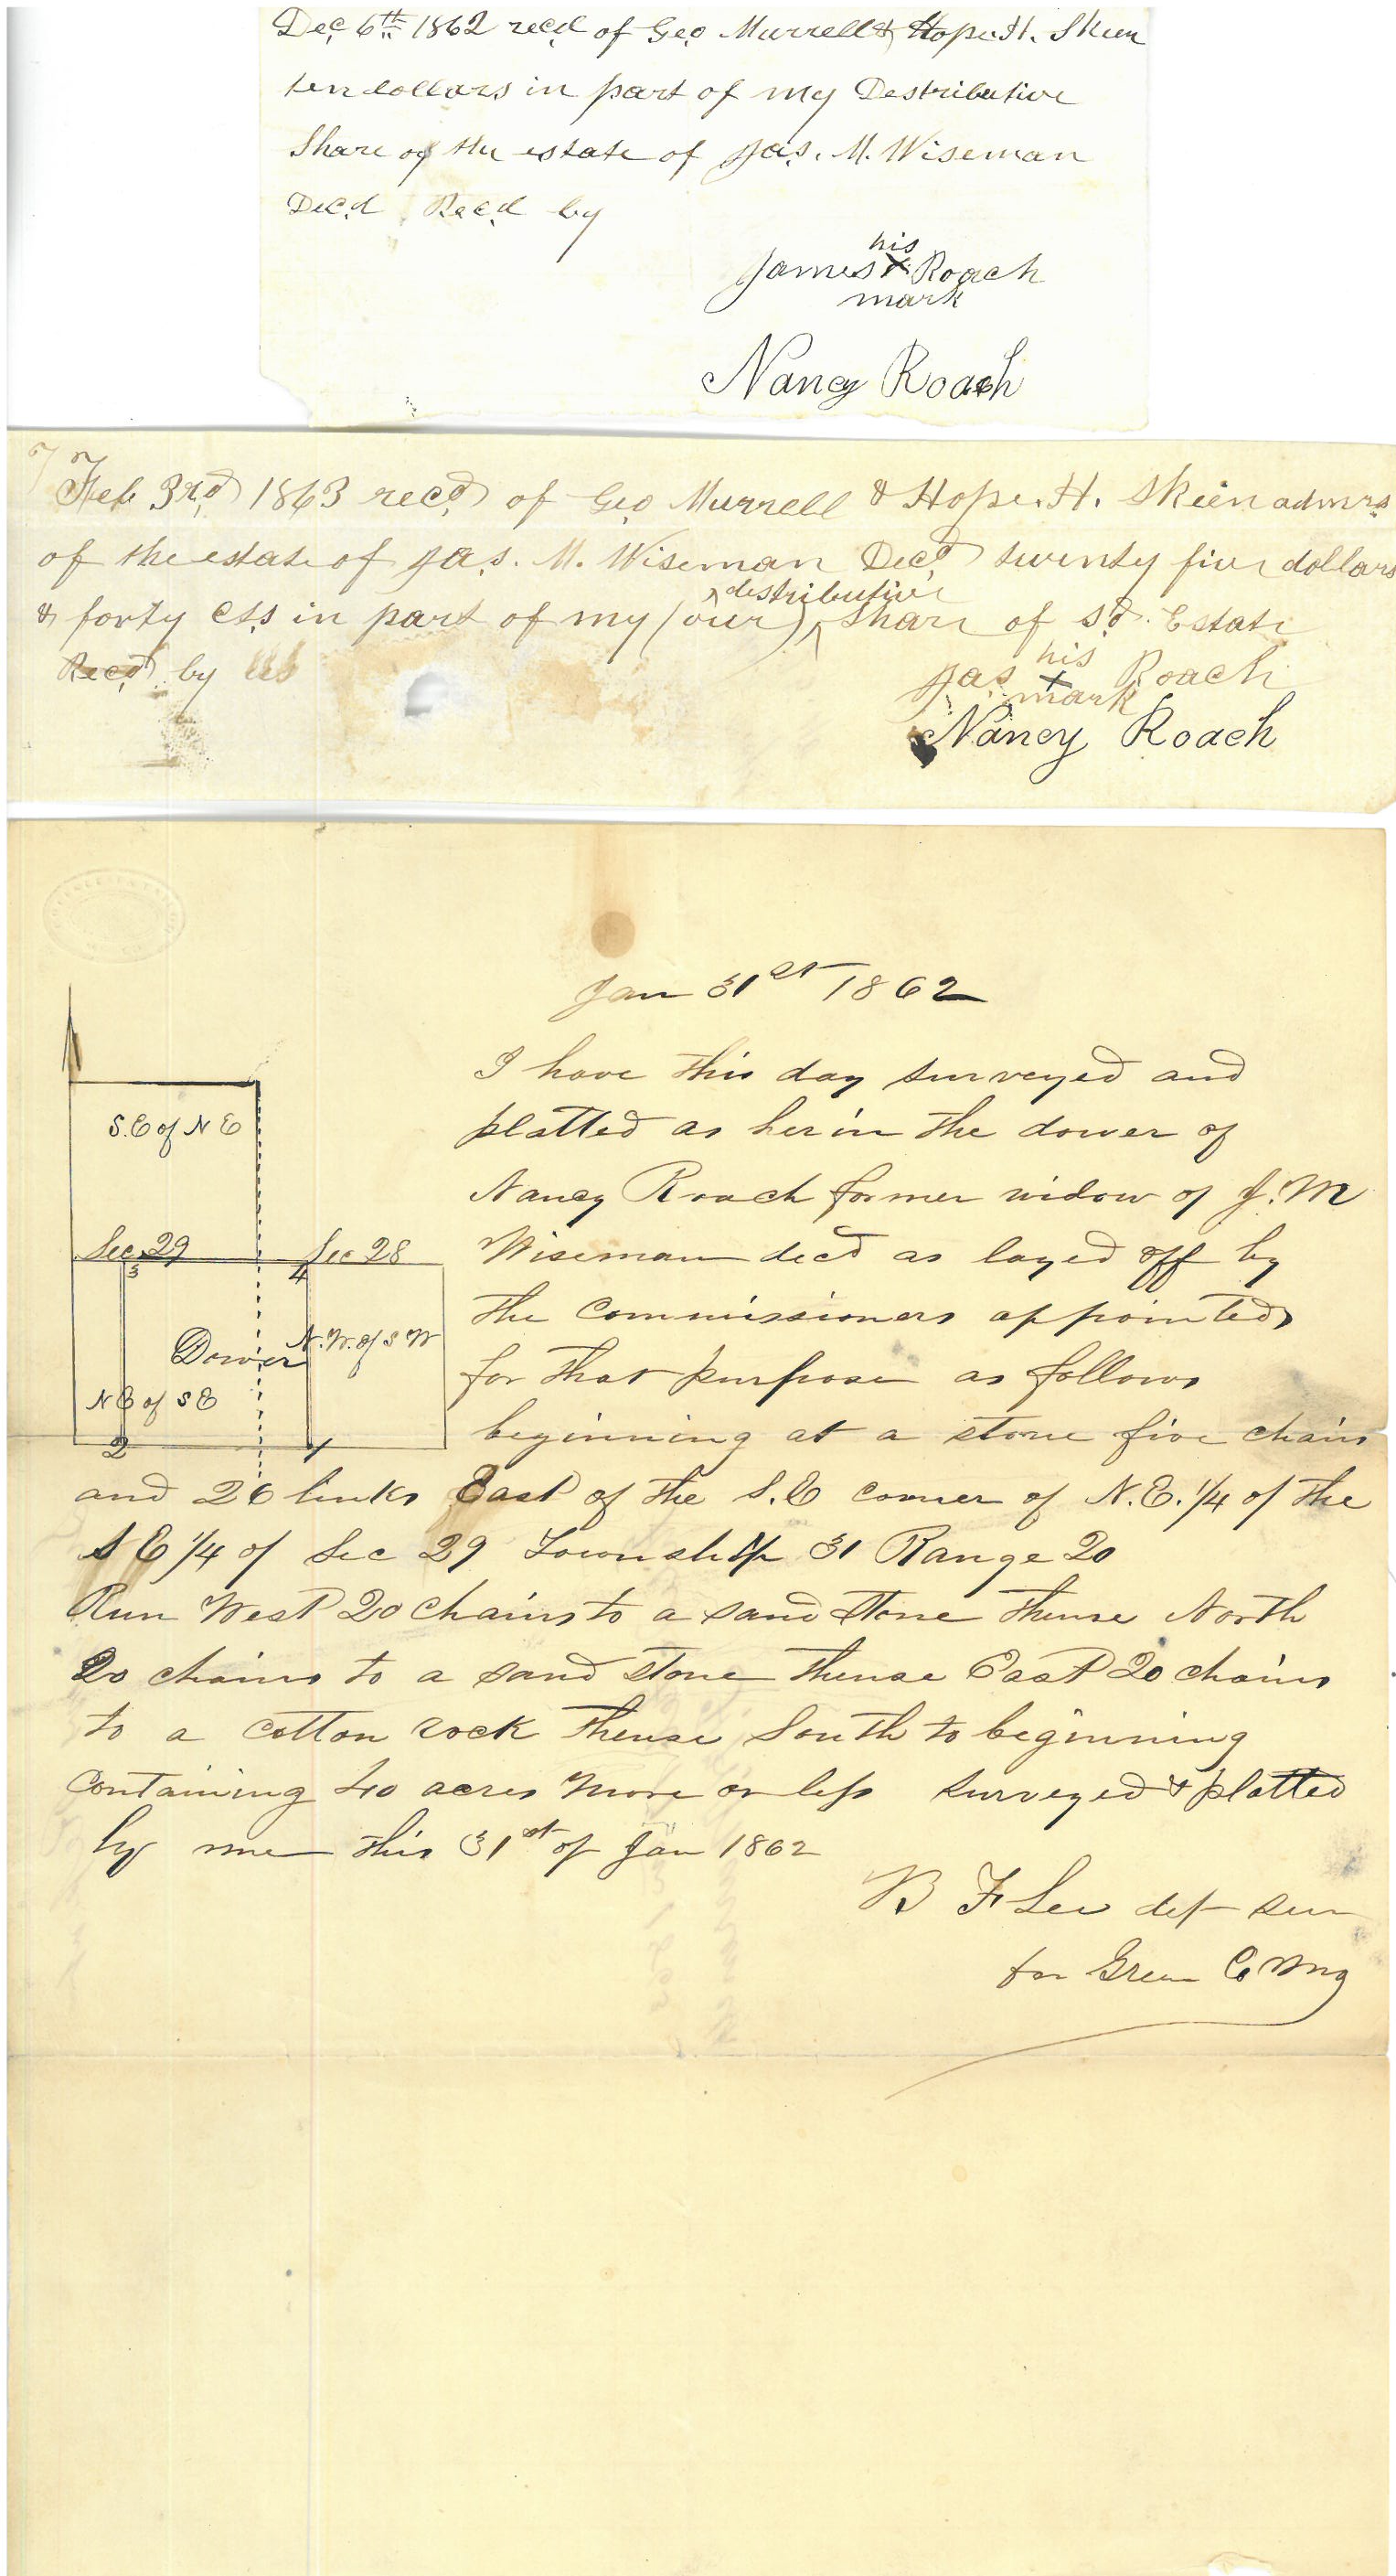 Dec. 6th 1862 recd of Geo Murrell & Hope. H. Skeen
ten dollars in part of my Destributive
Share of the estate of Jas. M. Wiseman
Dec.d Rec.d by
his
James X Roach
mark
Nancy Roach
Feb 3rd 1863 recd of Geo Murrell & Hope. H. Skeen admrs
of the estate of Jas. M. Wiseman Decd twenty five dollars
distributive
& forty cts in part of my (our) share of sd. Estate
Recd by
his
Jas X Roach
mark
Nancy Roach
Jan 31st 1862
I have this day surveyed and
platted as herin the dower of
Nancy Roach former widow of J. M
Wiseman decd as layed off by
the Commissioners appointed
for that purpose as follows
beginning at a stone five chains
and 26 links East of the S.E corner of N.E. 1/4 of the
S E 1/4 of Sec 29 Township 31 Range 20
Run West 20 Chains to a sand stone thense North
20 chains to a sand stone thense East 20 chains
to a cotton rock thense South to beginning
Containing 40 acres more or less surveyed & platted
by me this 31st of Jan 1862
B F Lee dept sur
for Green Co Mo
S.E of N E
Sec. 29
Sec 28
3
4
Dower
N.W. of S W
N E of S E
2
1